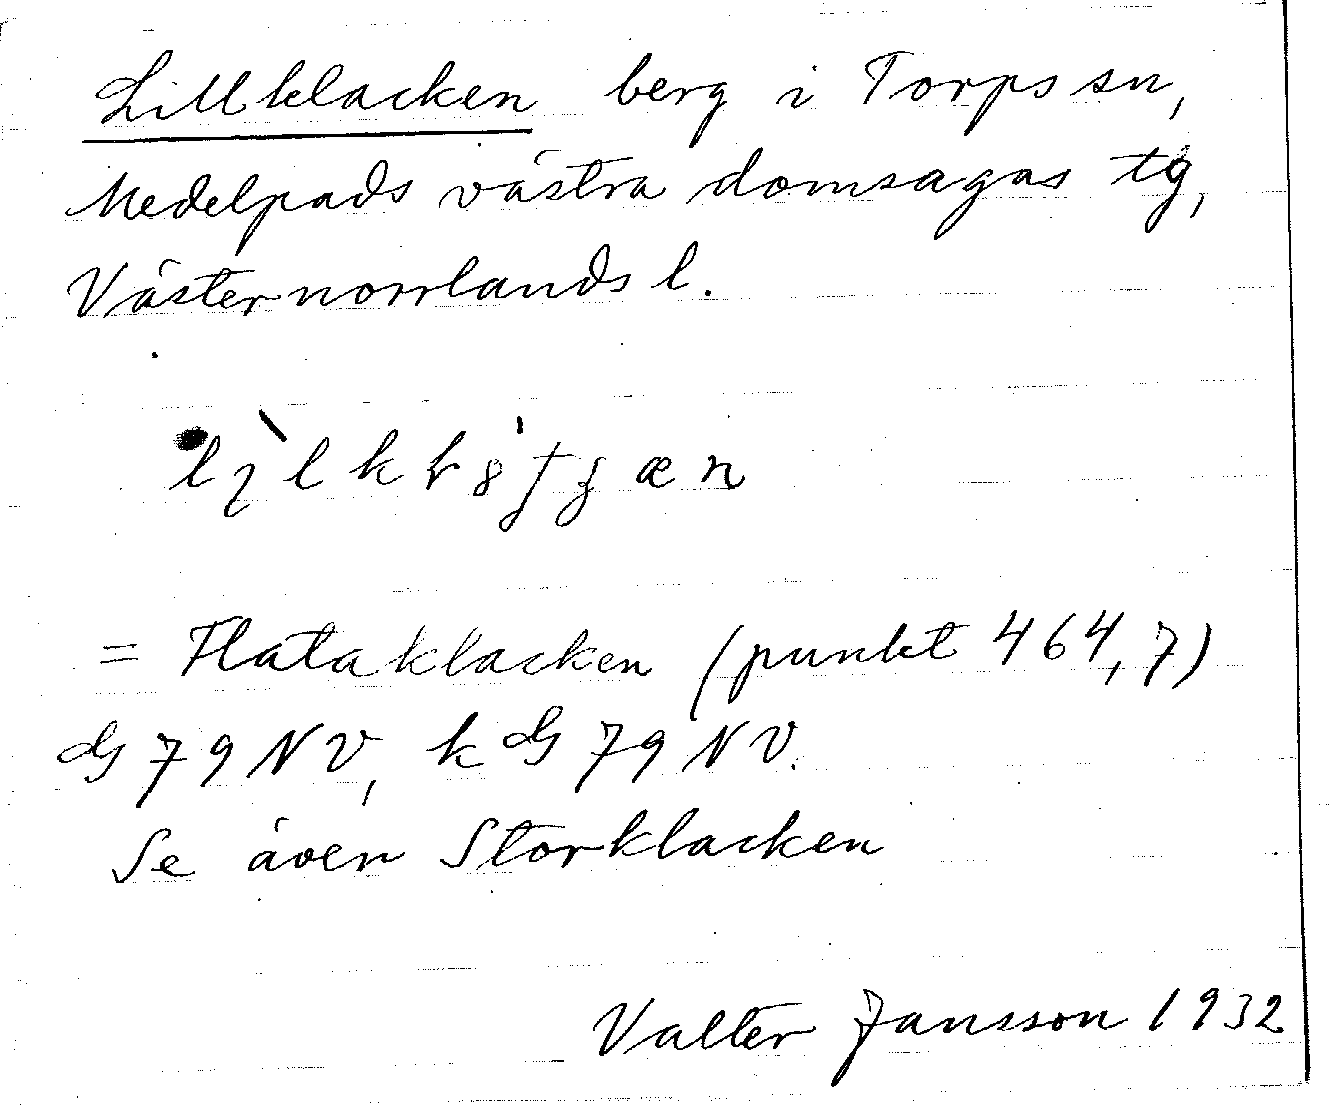 Lillklacken berg i Torps sn,
Medelpads västra domsagas tg,
Västernorrlands l.
= Flataklacken (punkt 464,7)
G 79 NV, k G 79 NV.
Se även Storklacken
Valter Jansson 1932